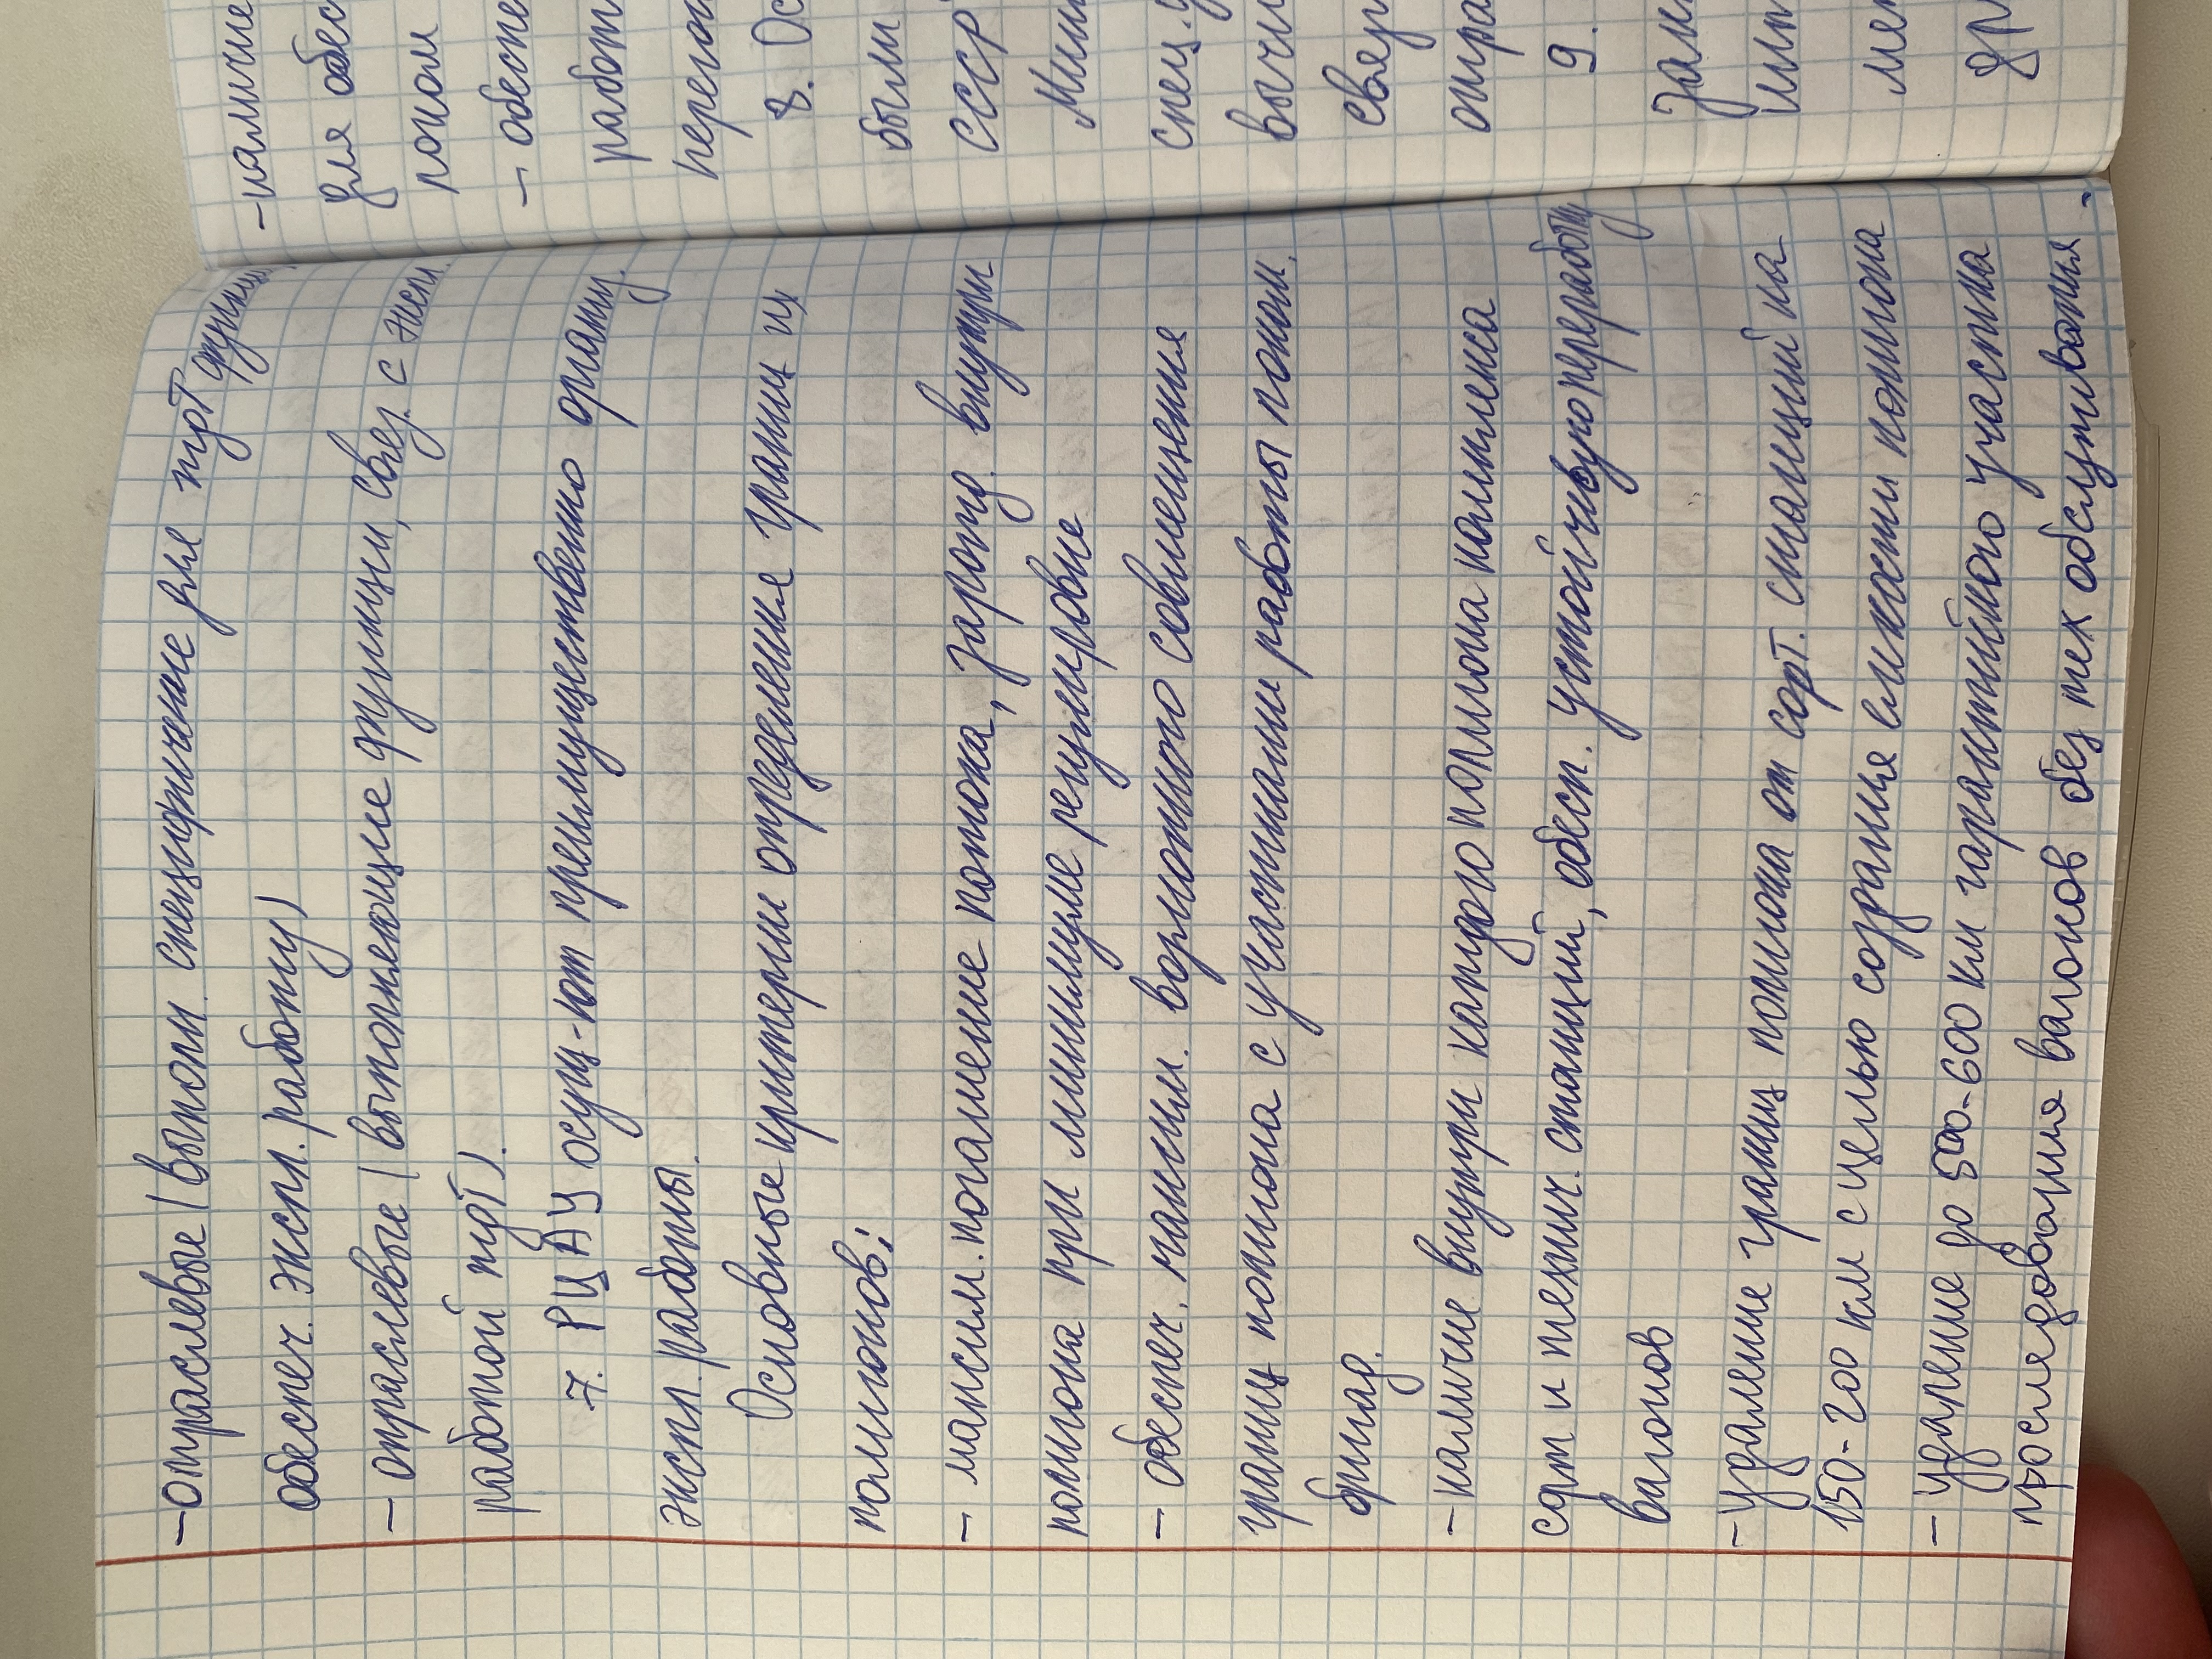 -отраслевые (выполн. специфичные для пдт функции
обеспеч. экспл. работу)
- отраслевые (выполняющие функции, связ. с экспл.
работой пдт).
7. РЦДУ осущ-ют преимущественно органы.
экспл. работы.
Основные критерии определения границ
полигонов:
- максим. погашение потока, зарожд. внутри
полигона при минимуме регулировке
- обеспеч. максим. возможного совмещения
границ полигона с участками работы локом.
бригад.
- наличие внутри каждого полигона комплекса
сорт и технич. станций, обесп. устойчивую переработку
вагонов
- удаление границ полигона от сорт. станций на
150-200 км с целью создания емкости полигона
- удлинение до 500-600 км гарантийного участка
проследования вагонов без тех обслуживания.
-наличие
для обес
локом
- обеспе
работ
перегон
8. Ос
были
СССР
Мин
спец.
вычи
связ
отра
9.
Зам